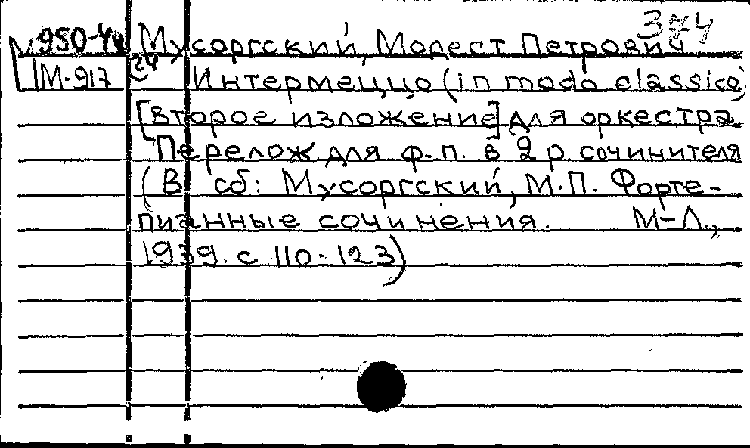 374
М950-44 Мусоргский, Модест Петрович
М-917 24 Интермеццо (in modo classico)
[второе изложение] для оркестра
Перелож для ф-п. в 2 р сочинителя
(В сб: Мусоргский, М.П. Форте-
пианные сочинения. М-Л.,
1939. с 110-123)